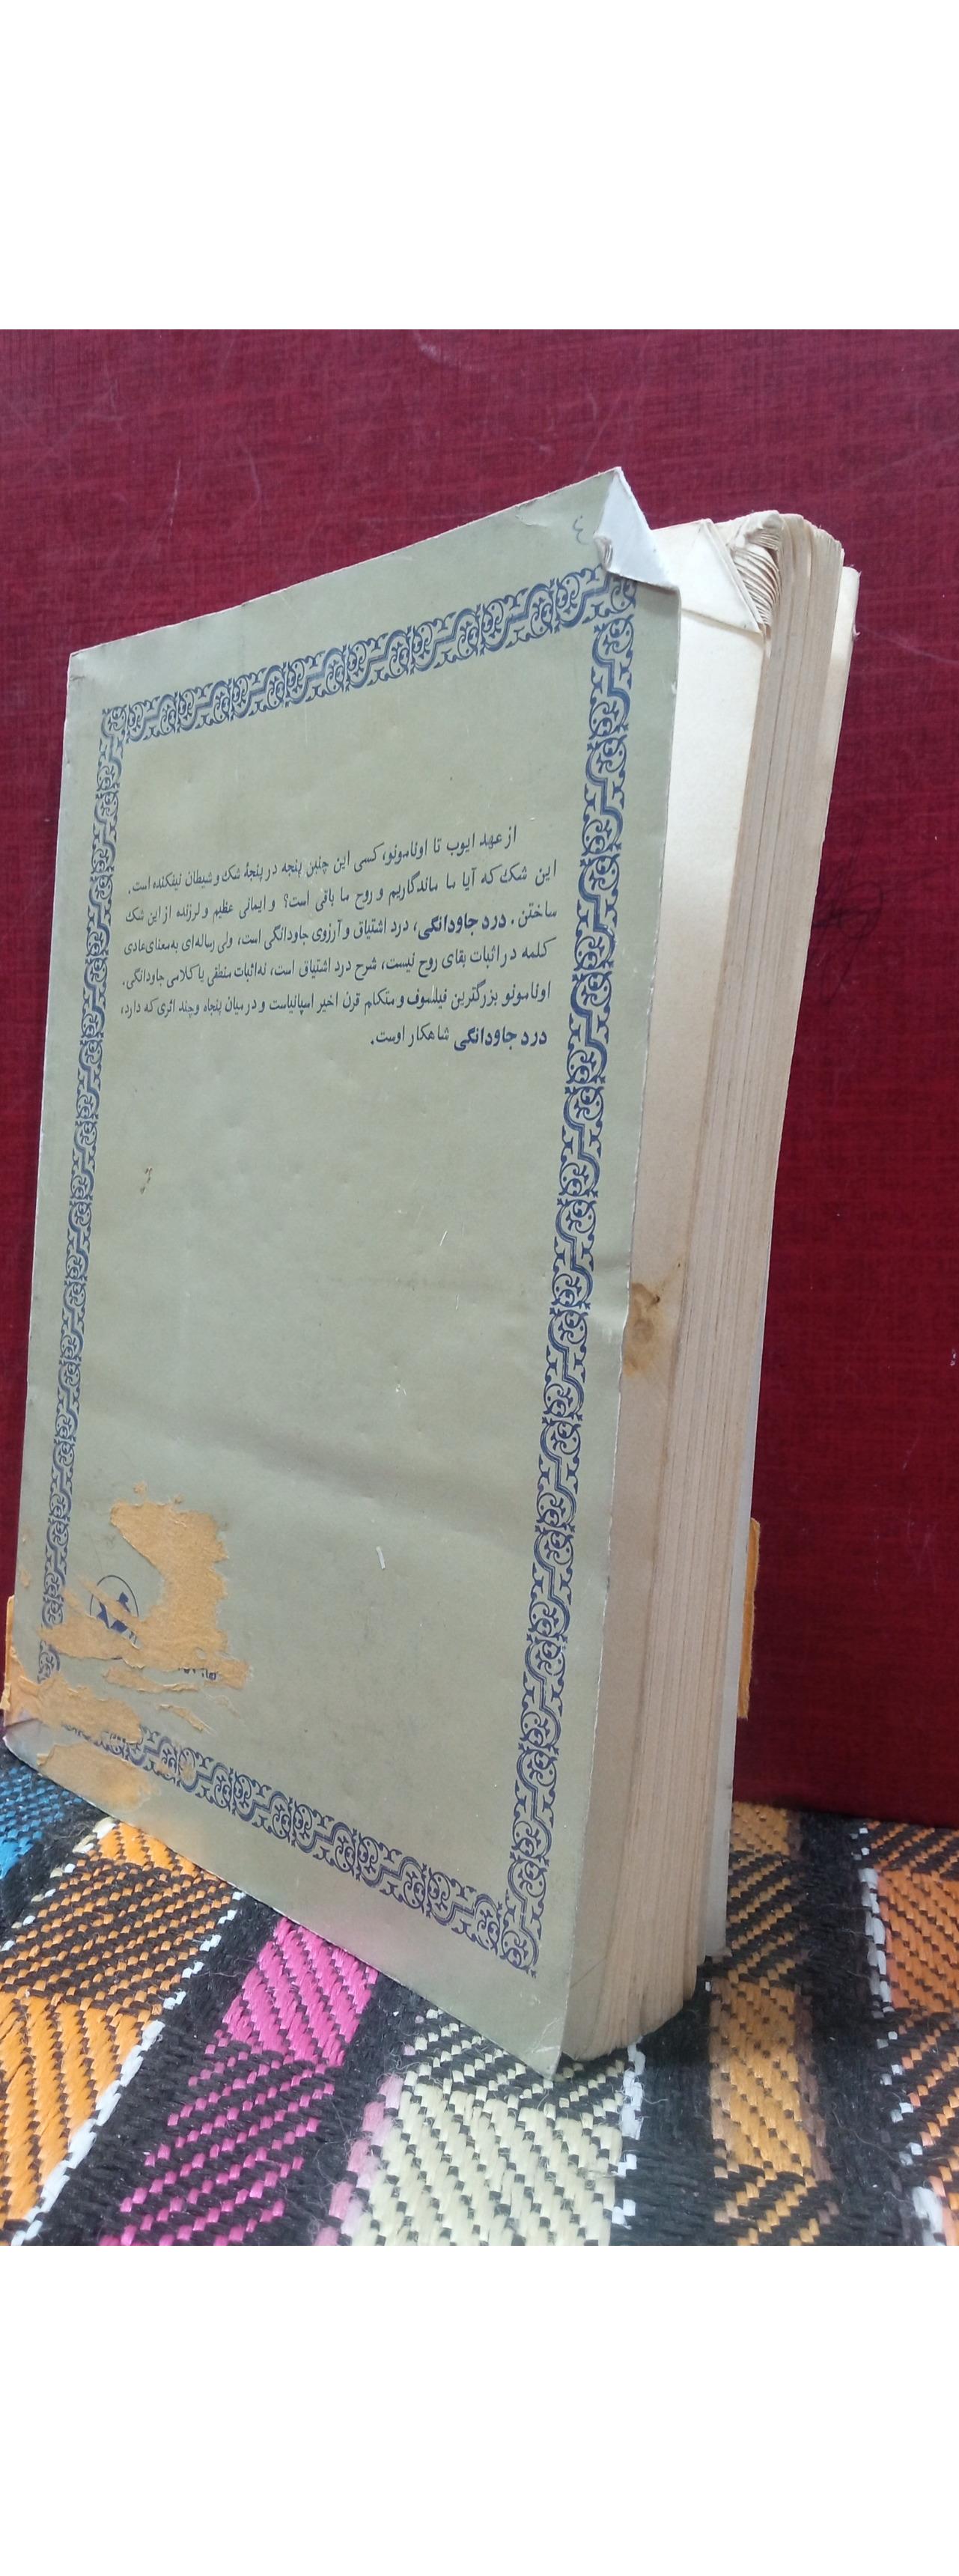 از عهد ایوب تا اونامونو، کسی این چنین پنجه در پنجهٔ شک و شیطان نیفکنده است.
این شک که آیا ما ماندگاریم و روح ما باقی است؟ و ایمانی عظیم و لرزنده از این شک
ساختن. درد جاودانگی، درد اشتیاق و آرزوی جاودانگی است، ولی رساله‌ای به‌معنای عادی
کلمه در اثبات بقای روح نیست، شرح درد اشتیاق است، نه اثبات منطقی یا کلامی جاودانگی.
اونامونو بزرگترین فیلسوف و متکلم قرن اخیر اسپانیاست و در میان پنجاه و چند اثری که دارد،
درد جاودانگی شاهکار اوست.